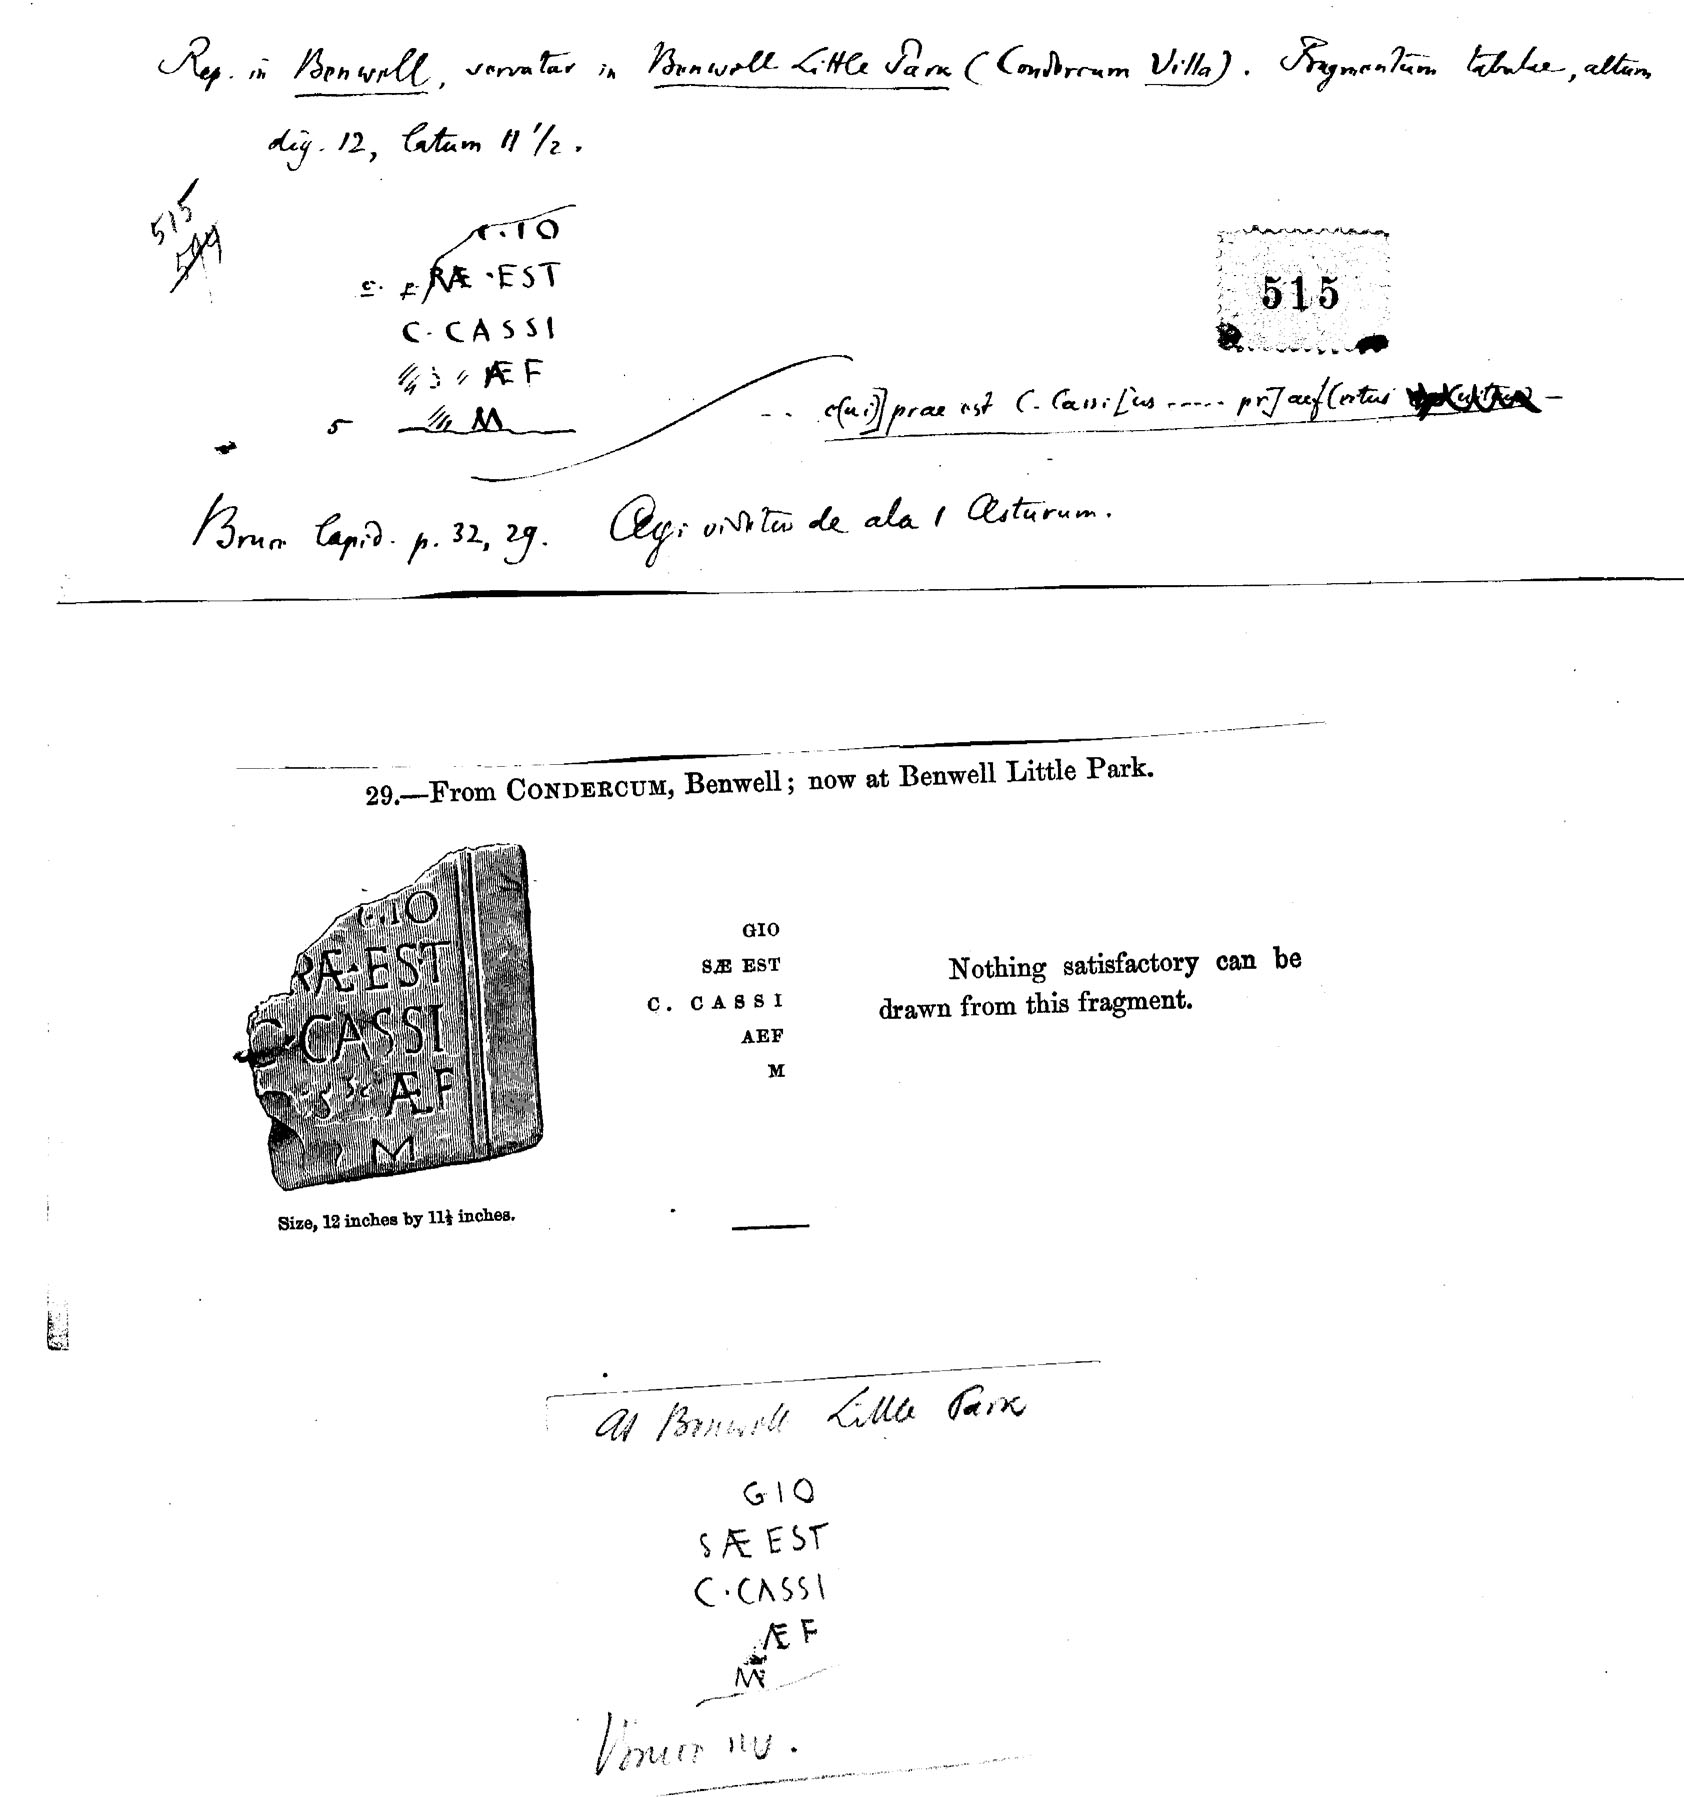 Rep. in Benwell, servatur in Benwell Little Park (Condercum Villa). Fragmentum tabulae, altum
dig. 12, latum 11 1/2.
515
599
G·IO
RÆ·EST
C·CASSI
ÆF
5 M
515
-- c[ui] prae est C. Cassi[us ----- pr]aef[ectus
Bruce lapid. p. 32, 29. Agi videtur de ala I Asturum.
29.—From CONDERCUM, Benwell; now at Benwell Little Park.
G·IO
RÆ·EST
C·CASSI
ÆF
M
GIO
SÆ EST
C. CASSI
AEF
M
Nothing satisfactory can be
drawn from this fragment.
Size, 12 inches by 11½ inches.
At Benwell Little Park
GIO
SÆ EST
C·CASSI
ÆF
M
Bruce